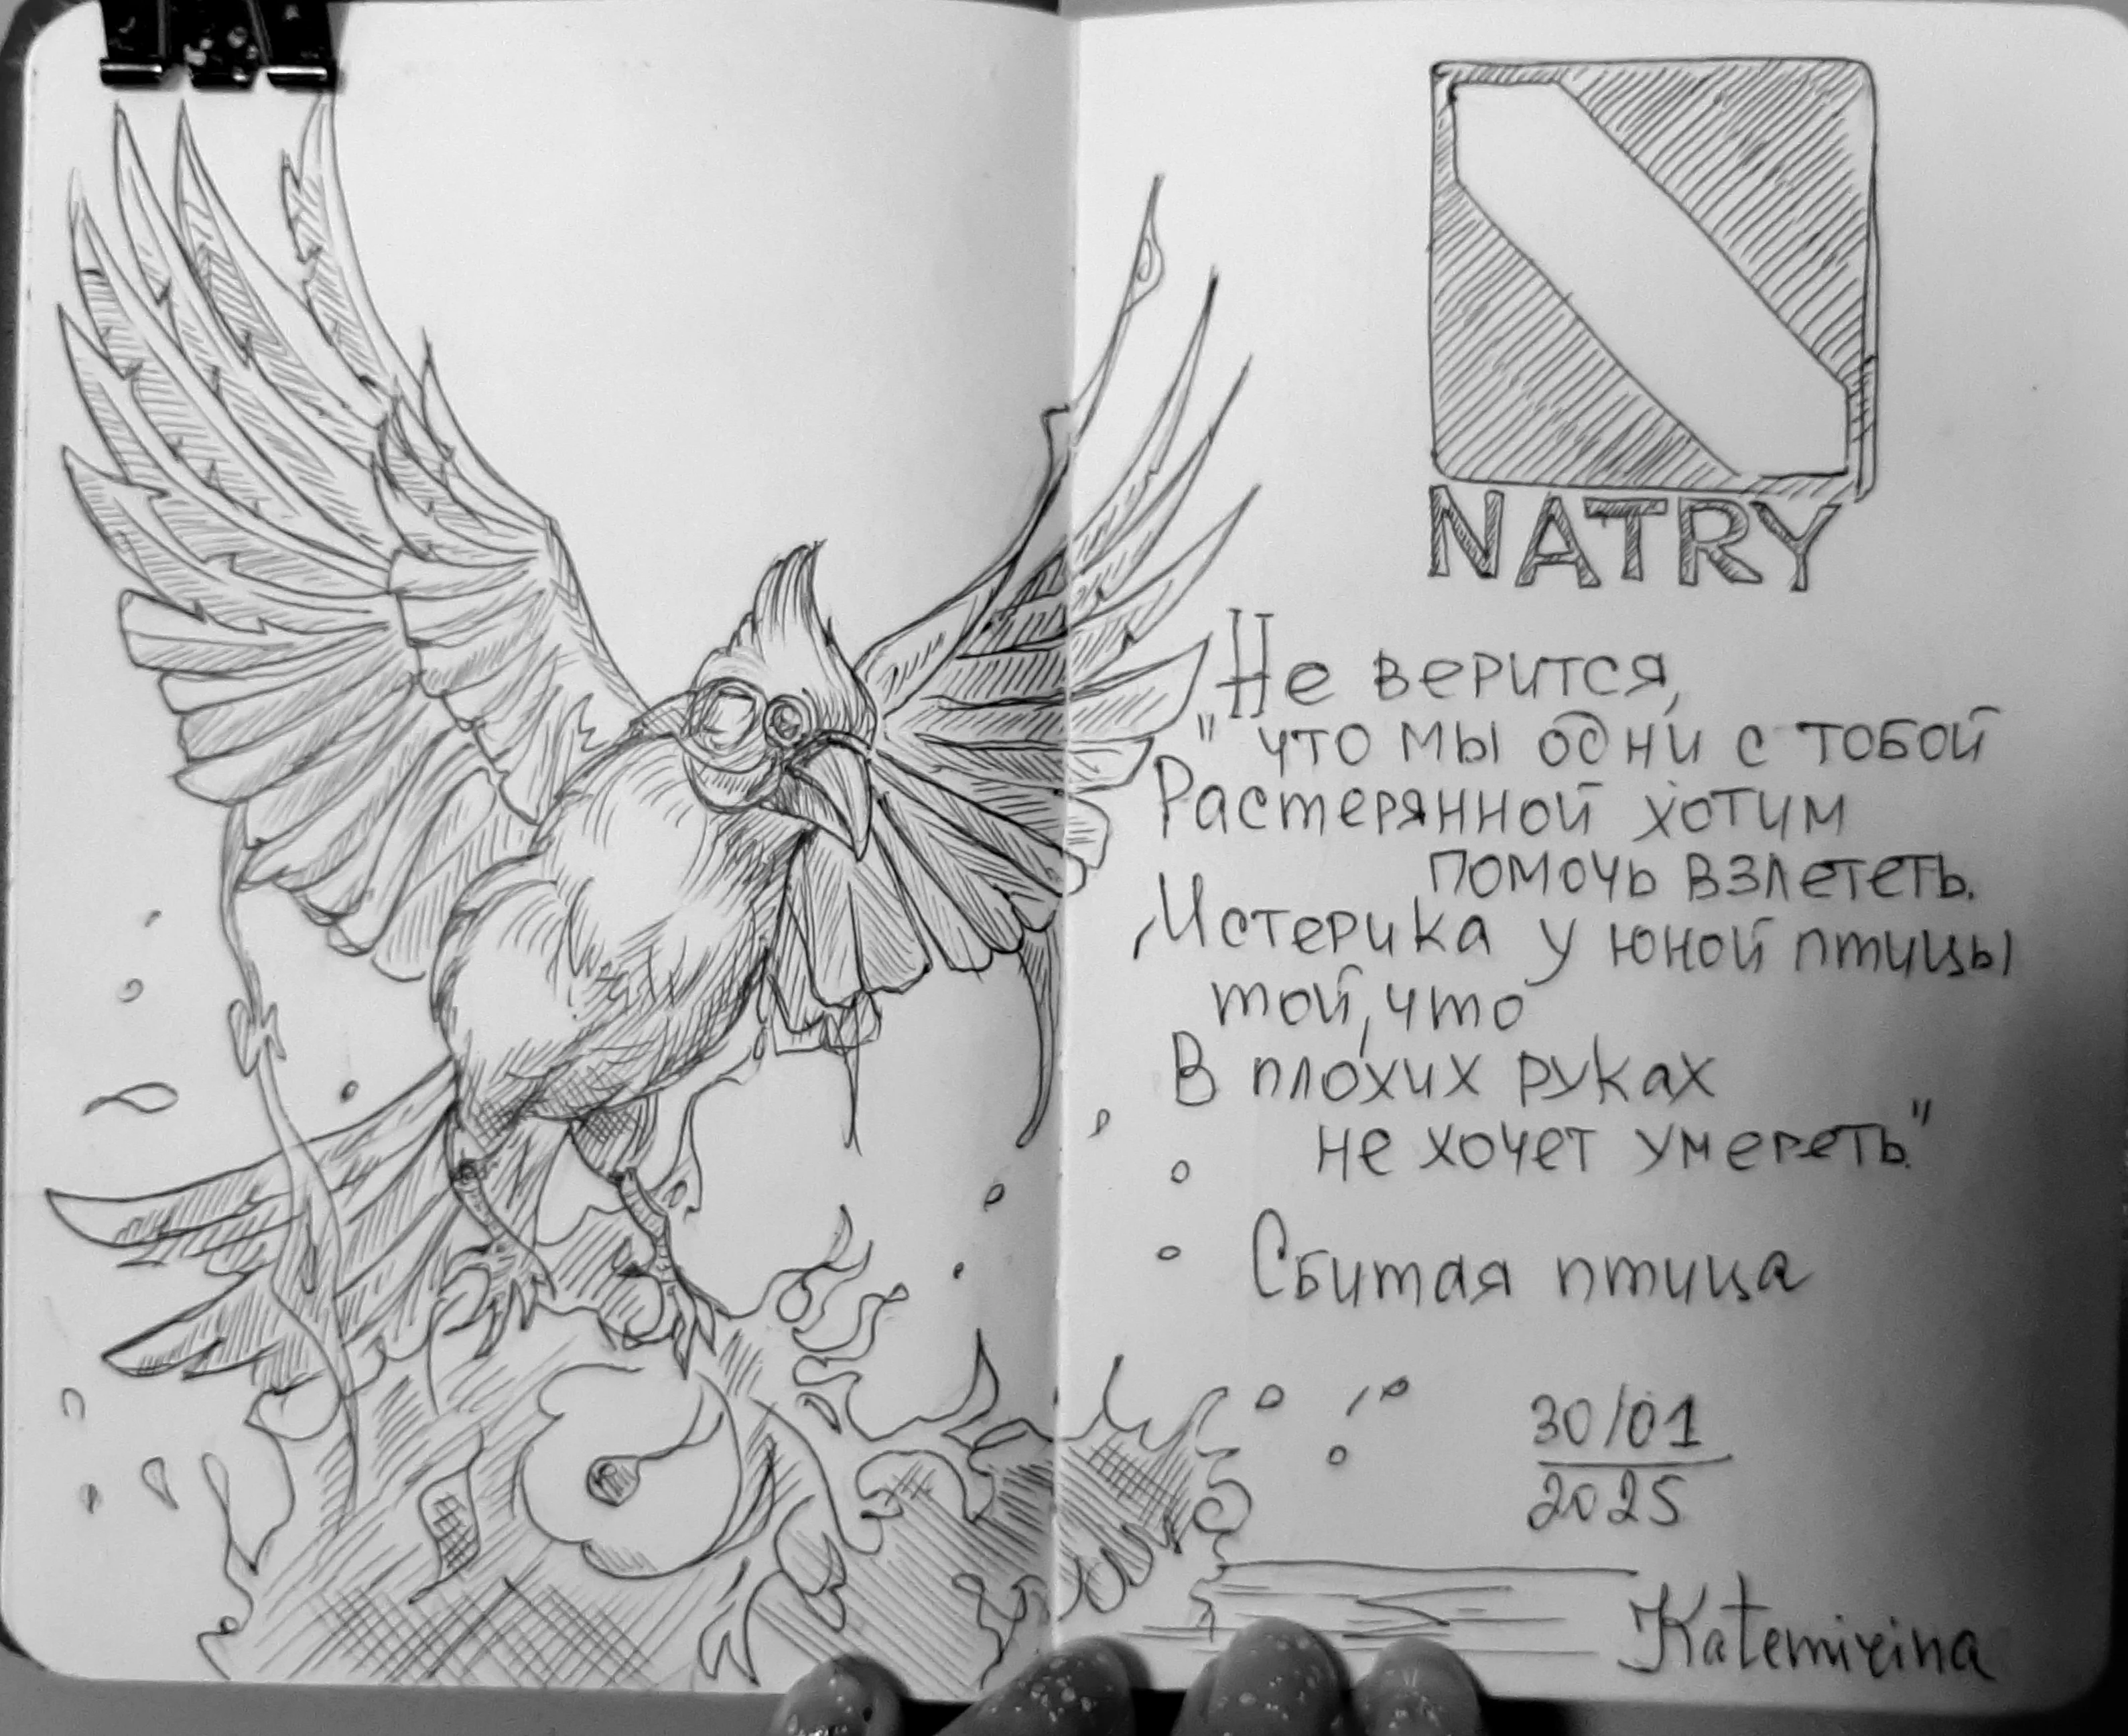 NATRY
Не верится,
"что мы одни с тобой
Растерянной хотим
помочь взлететь.
Истерика у юной птицы
той, что
В плохих руках
не хочет умереть."
Сбитая птица
30/01
2025
Katemirina